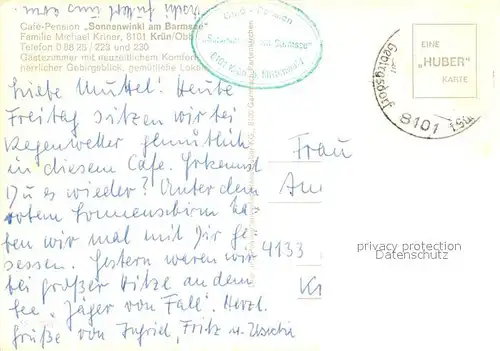 Café-Pension „Sonnenwinkl am Barmsee"
Familie Michael Kriner, 8101 Krün/Obb.
Telefon 0 88 25 / 223 und 230
Gästezimmer mit neuzeitlichem Komfort
herrlicher Gebirgsblick, gemütliche Lokal
Café - Pension
"Sonnenwinkl am Barmsee"
8101 Krün b. Mittenwald
EINE
„HUBER"
KARTE
Gebirgsdorf
8101
Liebe Muttel! Heute
Freitag sitzen wir bei
Regenwetter gemütlich
in diesem Cafe. Erkennst
Du es wieder? Unter dem
rotem Sonnenschirm ha-
ben wir mal mit Dir ge-
sessen. Gestern waren wir
bei großer Hitze an dem
See „Jäger von Fall". Herzl.
Grüße von Ingrid, Fritz u.
Frau
4133
privacy protection
Datenschutz